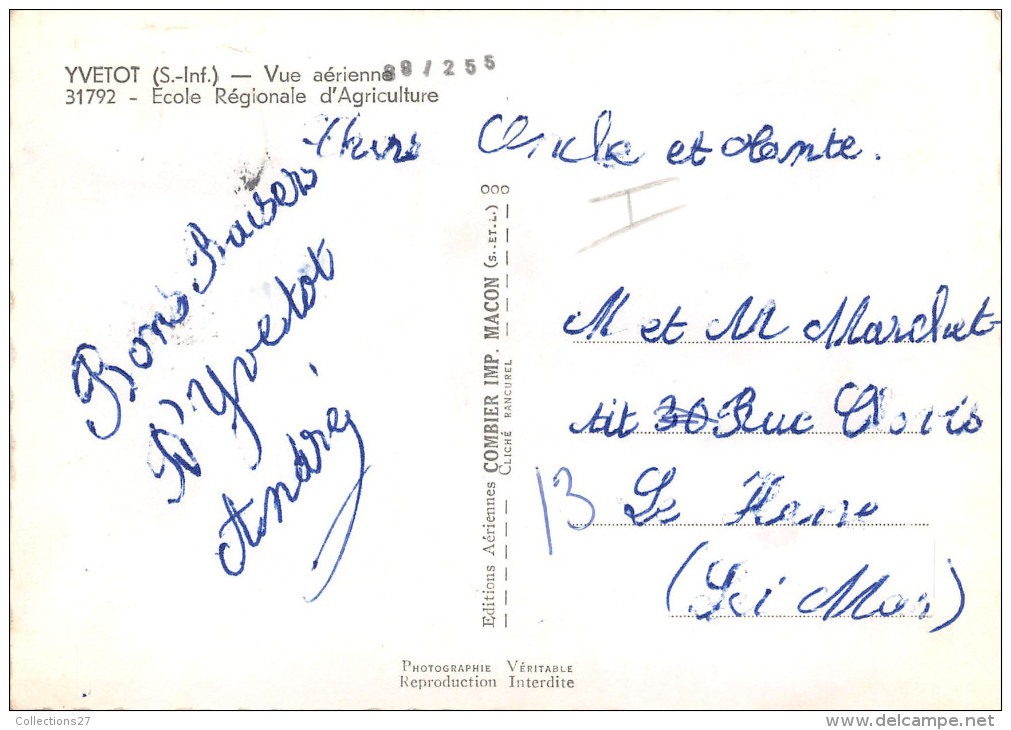 YVETOT (S.-Inf.) — Vue aérienne
88/255
31792 - Ecole Régionale d'Agriculture
Chers Oncle et Tante.
Bons Baisers
D'Yvetot
André
M et M Marchet
30 Rue Clovis
Le Havre
(Sei Mar)
Editions Aériennes COMBIER IMP. MACON (S.-ET-L.)
CLICHÉ RANCUREL
PHOTOGRAPHIE VÉRITABLE
Reproduction Interdite
Collections27
delcampe.net